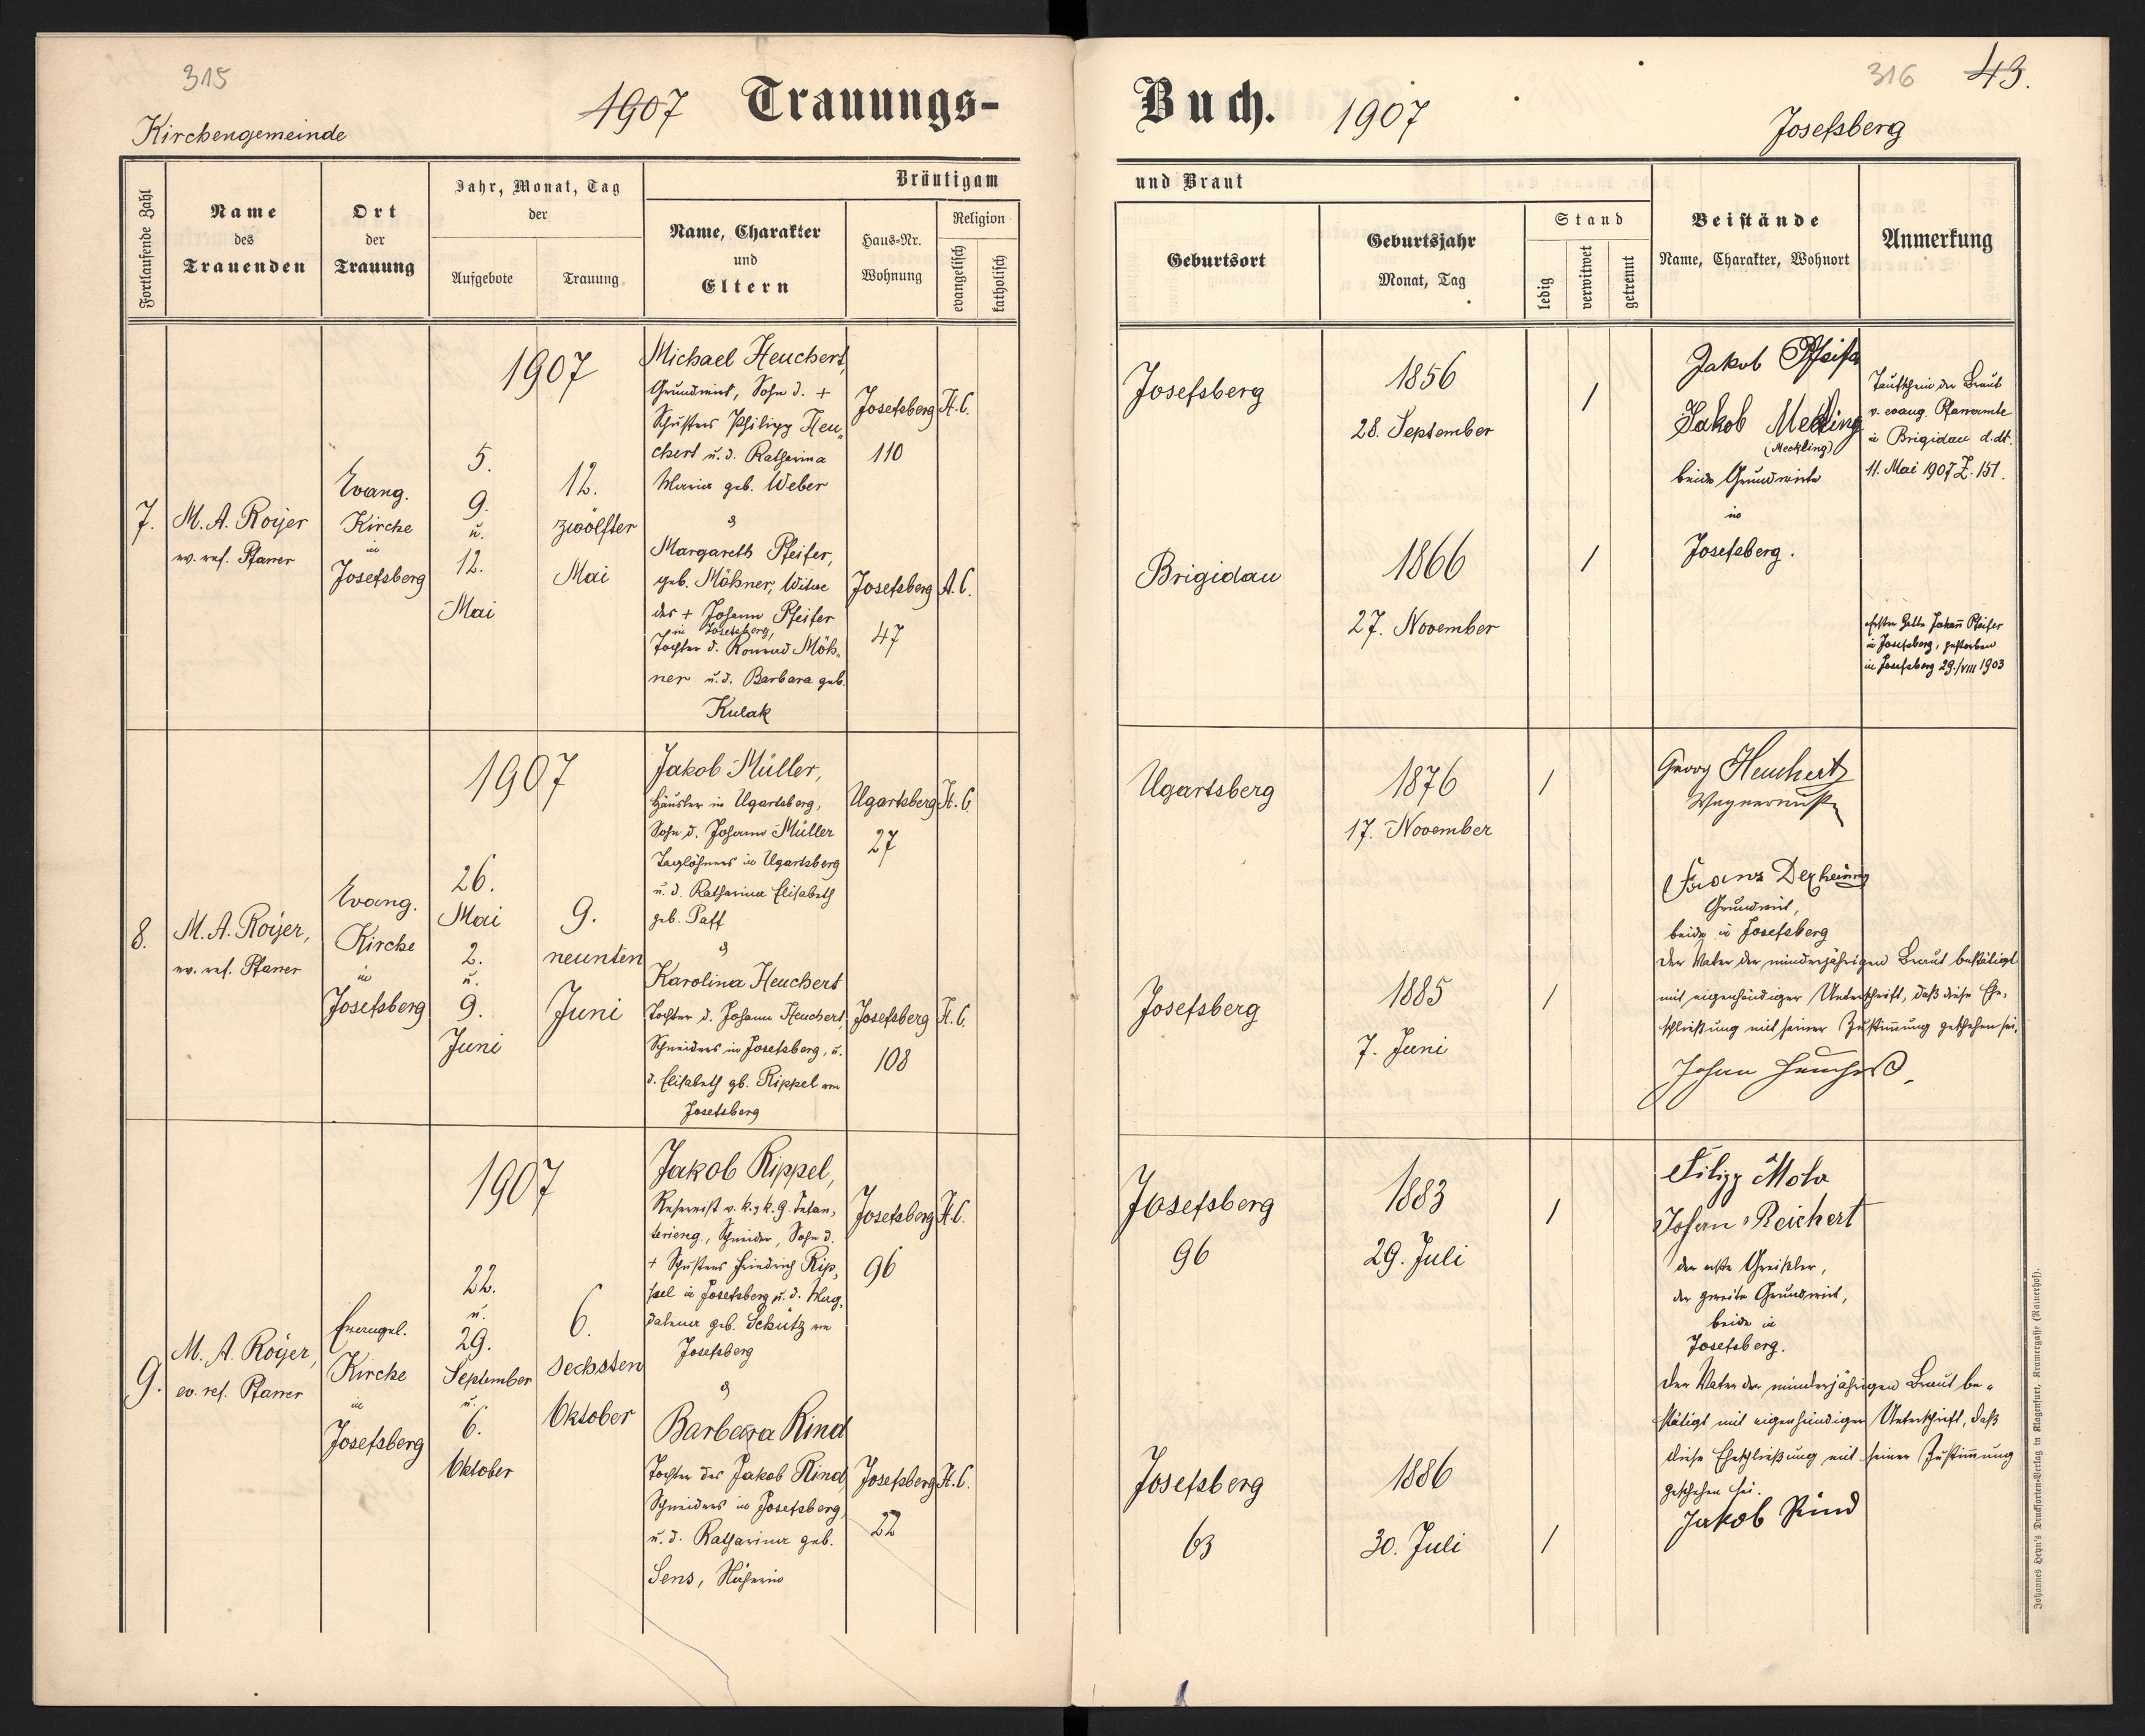 315
Kirchengemeinde
1907 Trauungs-
Fortlaufende Zahl
Name
des
Trauenden
Ort
der
Trauung
Jahr, Monat, Tag
der
Aufgebote
Trauung
Bräutigam
Name, Charakter
und
Eltern
Haus-Nr.
Wohnung
Religion
evangelisch
katholisch
7.
M. A. Royer
ev. ref. Pfarrer
Evang.
Kirche
in
Josefsberg
1907
5.
9.
u.
12.
Mai
12.
zwölfter
Mai
Michael Heuchert,
Grundwirt, Sohn d. +
Schusters Philipp Heu„
chert u. d. Katharina
Maria geb. Weber
&
Margareth Pfeifer,
geb. Möhner, Witwe
des + Johann Pfeifer
in Josefsberg,
Tochter d. Konrad Möh„
ner u. d. Barbara geb.
Kulak
Josefsberg
110
H. C.
Josefsberg
47
A. C.
8.
M. A. Royer,
ev. ref. Pfarrer
Evang.
Kirche
in
Josefsberg
1907
26.
Mai
2.
u.
9.
Juni
9.
neunten
Juni
Jakob Müller,
Häusler in Ugartsberg,
Sohn d. Johann Müller
Taglöhners in Ugartsberg
u. d. Katharina Elisabeth
geb. Paff
&
Karolina Heuchert
Tochter d. Johann Heuchert,
Schneiders in Josefsberg, u.
d. Elisabeth gb. Rippel von
Josefsberg
Ugartsberg
27
H. C.
Josefsberg
108
H. C.
9.
M. A. Royer,
ev. ref. Pfarrer
Evangel.
Kirche
in
Josefsberg
1907
22.
u.
29.
September
u.
6.
Oktober
6.
sechsten
Oktober
Jakob Rippel,
Reservist v. k. k. 9. Infan„
terieng., Schneider, Sohn d.
+ Schusters Friedrich Rip„
pel in Josefsberg u. d. Mag„
dalena geb. Schütz von
Josefsberg
&
Barbara Rind
Tochter des Jakob Rind,
Schneiders in Josefsberg,
u. d. Katharina geb.
Sens, Näherin
Josefsberg
96
H. C.
Josefsberg
22
H. C.
316 43.
Buch. 1907
Josefsberg
und Braut
Geburtsort
Geburtsjahr
Monat, Tag
Stand
ledig
verwitwet
getrennt
Beistände
Name, Charakter, Wohnort
Anmerkung
Josefsberg
1856
28. September
/
Brigidau
1866
27. November
/
Jakob Pfeifer
Jakob Mekling
(Meckling)
beide Grundwirte
in
Josefsberg.
Taufschein der Braut
v. evang. Pfarramte
in Brigidau d. dt.
11. Mai 1907 Z. 151.
Erster Gatte Johann Pfeifer
in Josefsberg, gestorben
in Josefsberg 29./VIII 1903
Ugartsberg
1876
17. November
/
Josefsberg
1885
7. Juni
/
Georg Heuchert
Wagnermstr
Franz Dexheimer
Grundwirt,
beide in Josefsberg
Der Vater der minderjährigen Braut bestätigt
mit eigenhändiger Unterschrift, daß diese Ehe„
schließung mit seiner Zustimmung geschehen sei.
Johan Heuchert.
Josefsberg
96
1883
29. Juli
/
Josefsberg
63
1886
30. Juli
/
Filipp
Johan Reichert
der erste Greißler,
der zweite Grundwirt,
beide in
Josefsberg.
Der Vater der minderjährigen Braut be„
stätigt mit eigenhändiger Unterschrift, daß
diese Eheschließung mit seiner Zustimmung
geschehen sei.
Jakob Rind
Johannes Heyn's Drucksorten-Verlag in Klagenfurt, Kramergasse (Rainerhof).